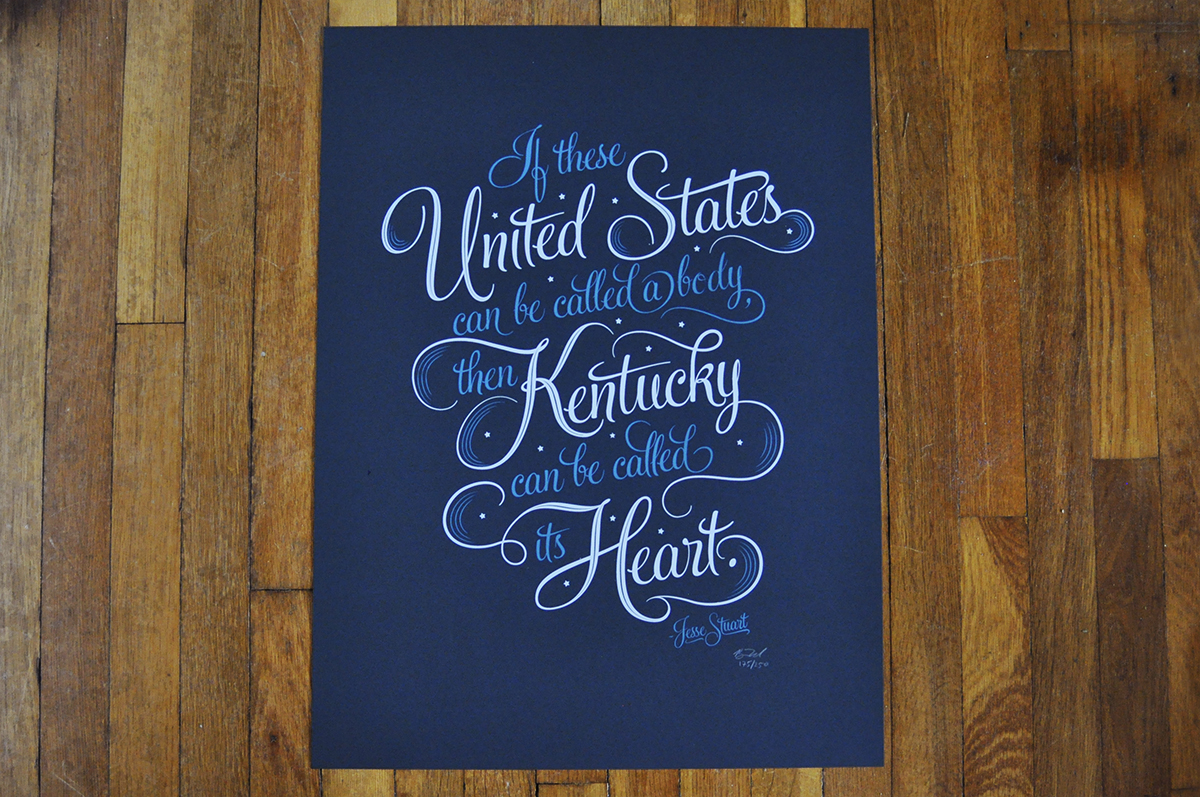 If these
United States
can be called a body,
then Kentucky
can be called
its Heart.
-Jesse Stuart
175/250